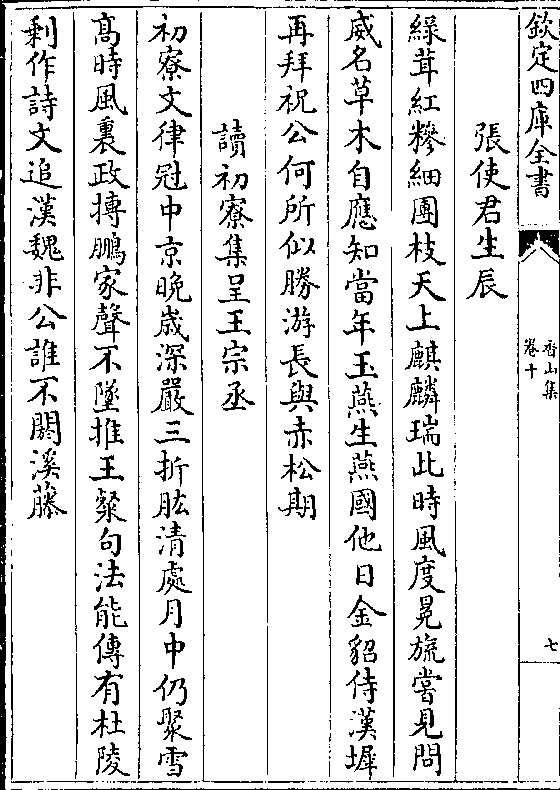 欽定四庫全書
香山集
卷十
七
張使君生辰
綠茸紅糝細團枝天上麒麟瑞此時風度冕旒嘗見問
威名草木自應知當年玉燕生燕國他日金貂侍漢墀
再拜祝公何所似勝游長與赤松期
讀初寮集呈王宗丞
初寮文律冠中京晚歲深嚴三折肱清處月中仍聚雪
髙時風裏政摶鵬家聲不墜推王粲句法能傳有杜陵
剰作詩文追漢魏非公誰不闕溪藤